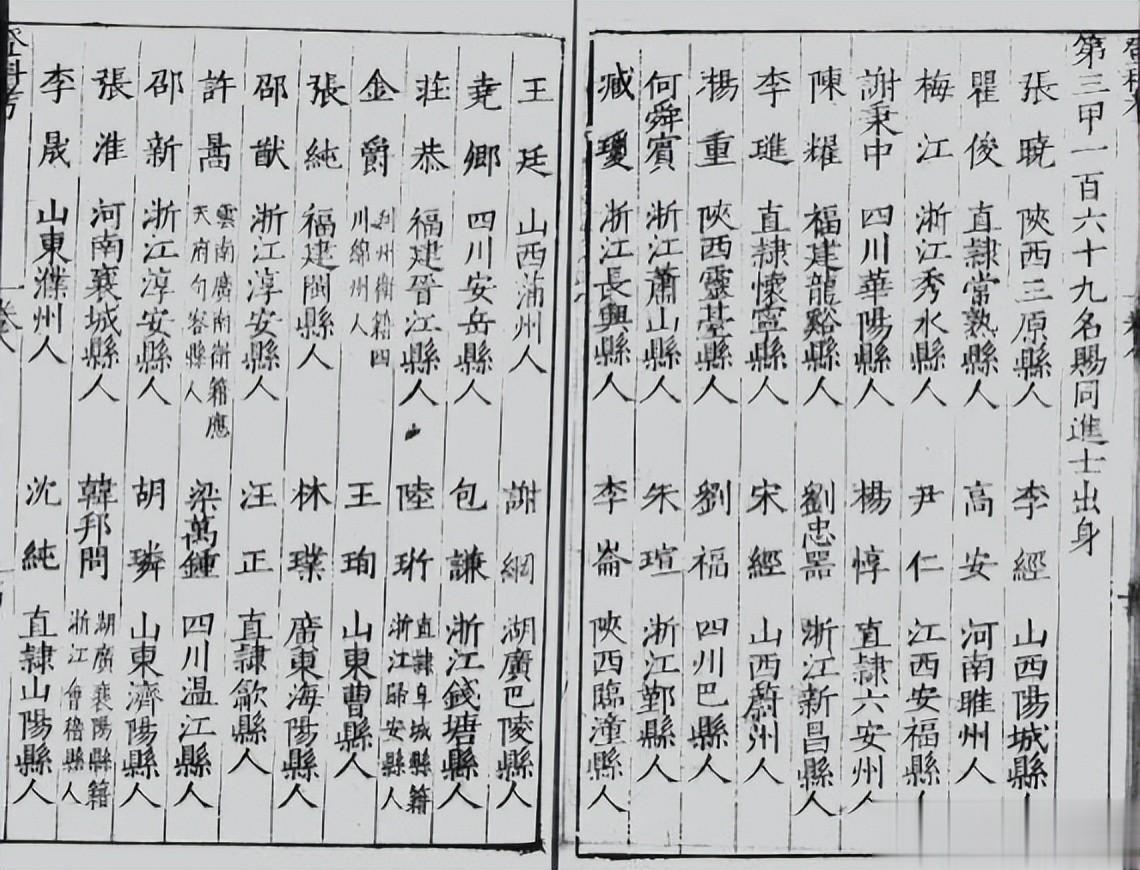 第三甲一百六十九名賜同進士出身
張曉 陝西三原縣人 李經 山西陽城縣人
瞿俊 直隸常熟縣人 高安 河南睢州人
梅江 浙江秀水縣人 尹仁 江西安福縣人
謝秉中 四川華陽縣人 楊惇 直隸六安州人
陳耀 福建龍谿縣人 劉忠器 浙江新昌縣人
李璡 直隸懷寧縣人 宋經 山西蔚州人
楊重 陝西靈䑓縣人 劉福 四川巴縣人
何舜賓 浙江蕭山縣人 朱瑄 浙江鄞縣人
臧瓊 浙江長興縣人 李崙 陝西臨潼縣人
王廷 山西蒲州人 謝綱 湖廣巴陵縣人
堯卿 四川安岳縣人 包謙 浙江錢塘縣人
莊恭 福建晉江縣人 陸珩 直隸阜城縣籍浙江歸安縣人
金爵 州衛籍四川綿州人 王珣 山東曹縣人
張純 福建閩縣人 林璞 廣東海陽縣人
邵猷 浙江淳安縣人 汪正 直隸歙縣人
許暠 雲南廣南衛籍應天府句容縣人 梁萬鍾 四川温江縣人
邵新 浙江淳安縣人 胡璘 山東濟陽縣人
張淮 河南襄城縣人 韓邦問 湖廣襄陽縣籍浙江會稽縣人
李晟 山東濮州人 沈純 直隸山陽縣人